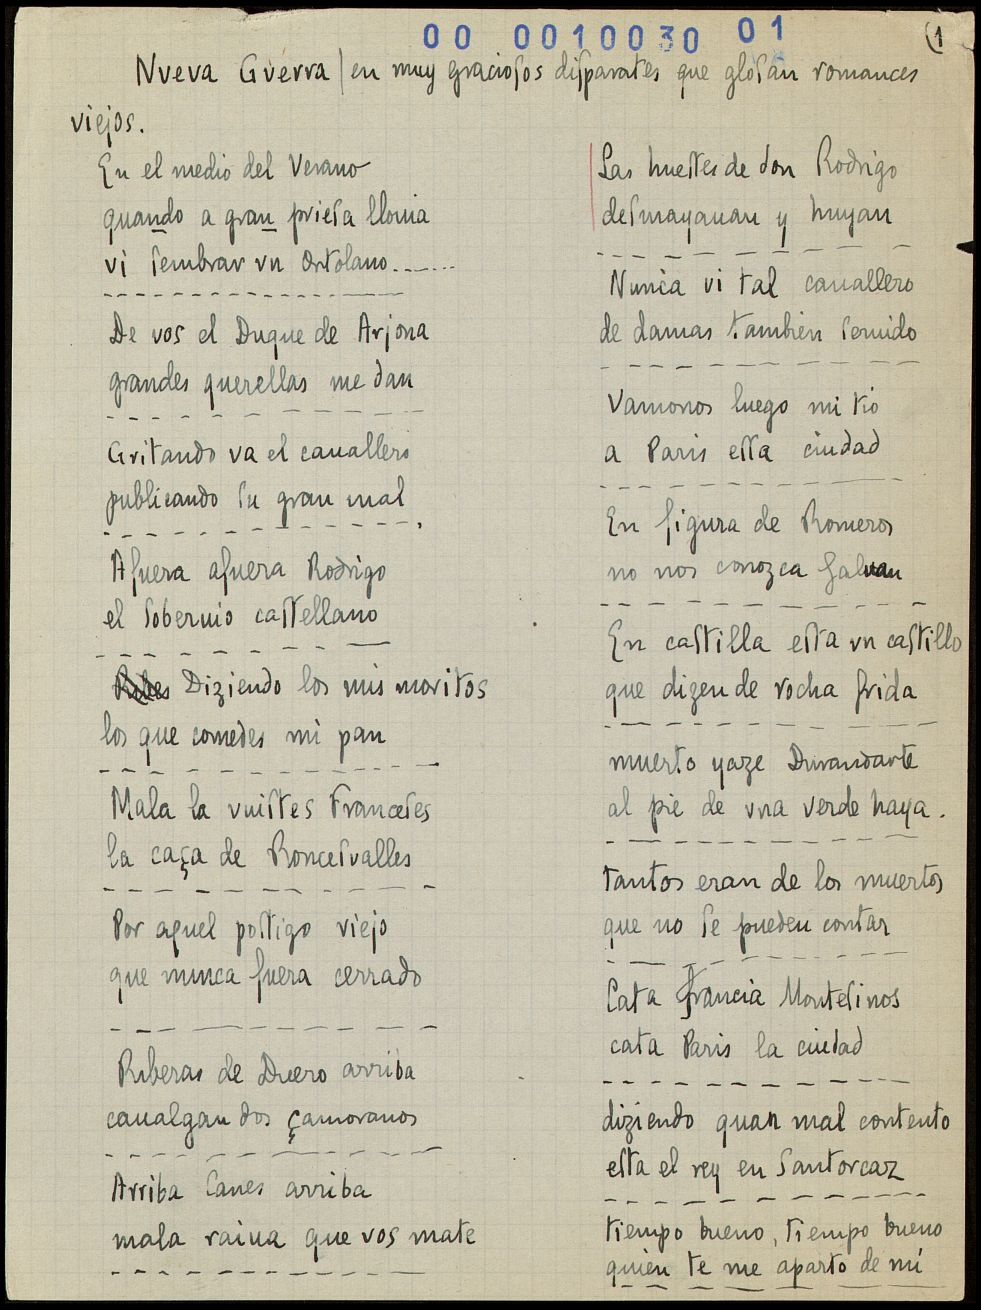 00 0010030 01
1
Nueva Guerra / en muy gracioſos diſparates que gloſan romances
viejos.
En el medio del Verano
quando a gran prieſa llouia
vi ſembrar vn Ortolano
De vos el Duque de Arjona
grandes querellas me dan
Gritando va el cauallero
publicando ſu gran mal
Afuera afuera Rodrigo
el ſoberuio caſtellano
Diziendo los mis moritos
los que comedes mi pan
Mala la vuiſtes Franceſes
la caça de Ronceſvalles
Por aquel poſtigo viejo
que nunca fuera cerrado
Riberas de Duero arriba
caualgan dos çamoranos
Arriba canes arriba
mala rauia que vos mate
Las hueſtes de don Rodrigo
deſmayauan y huyan
Nunca vi tal cauallero
de damas tambien ſeruido
Vamonos luego mi tio
a Paris eſſa ciudad
En figura de Romeros
no nos conozca Galuan
En caſtilla eſta vn caſtillo
que dizen de rocha frida
muerto yaze Durandarte
al pie de vna verde haya.
tantos eran de los muertos
que no ſe pueden contar
Cata francia Monteſinos
cata Paris la ciudad
diziendo quan mal contento
eſta el rey en Santorcaz
tiempo bueno, tiempo bueno
quien te me aparto de mi